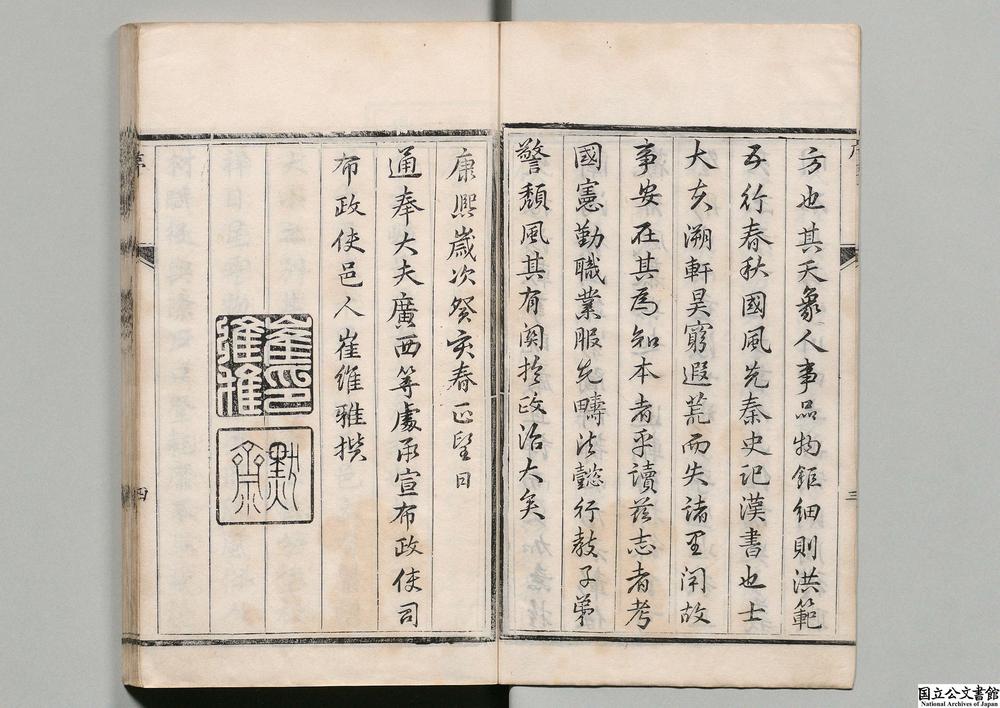 方也其天象人事品物鉅細則洪範
五行春秋國風先秦史記漢書也士
大夫溯軒昊窮遐荒而失諸里閈故
事安在其為知本者乎讀茲志者考
國憲勤職業服先疇法懿行敎子弟
警頹風其有関扵政治大矣
康熙歲次癸亥春正望日
通奉大夫廣西等處承宣布政使司
布政使邑人崔維雅撰
崔維雅印
默齋
序
三
四
国立公文書館
National Archives of Japan